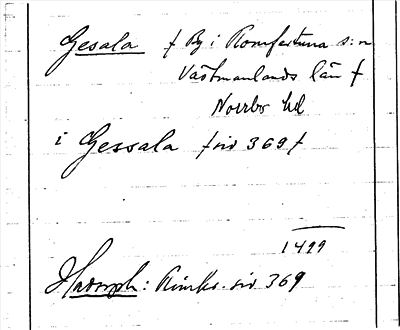 Gesala / By i Romfartuna s:n
Västmanlands län /
Norrbo hd
i Gessala / sid 369 /
1499
Hadorph: Rimkr. sid 369